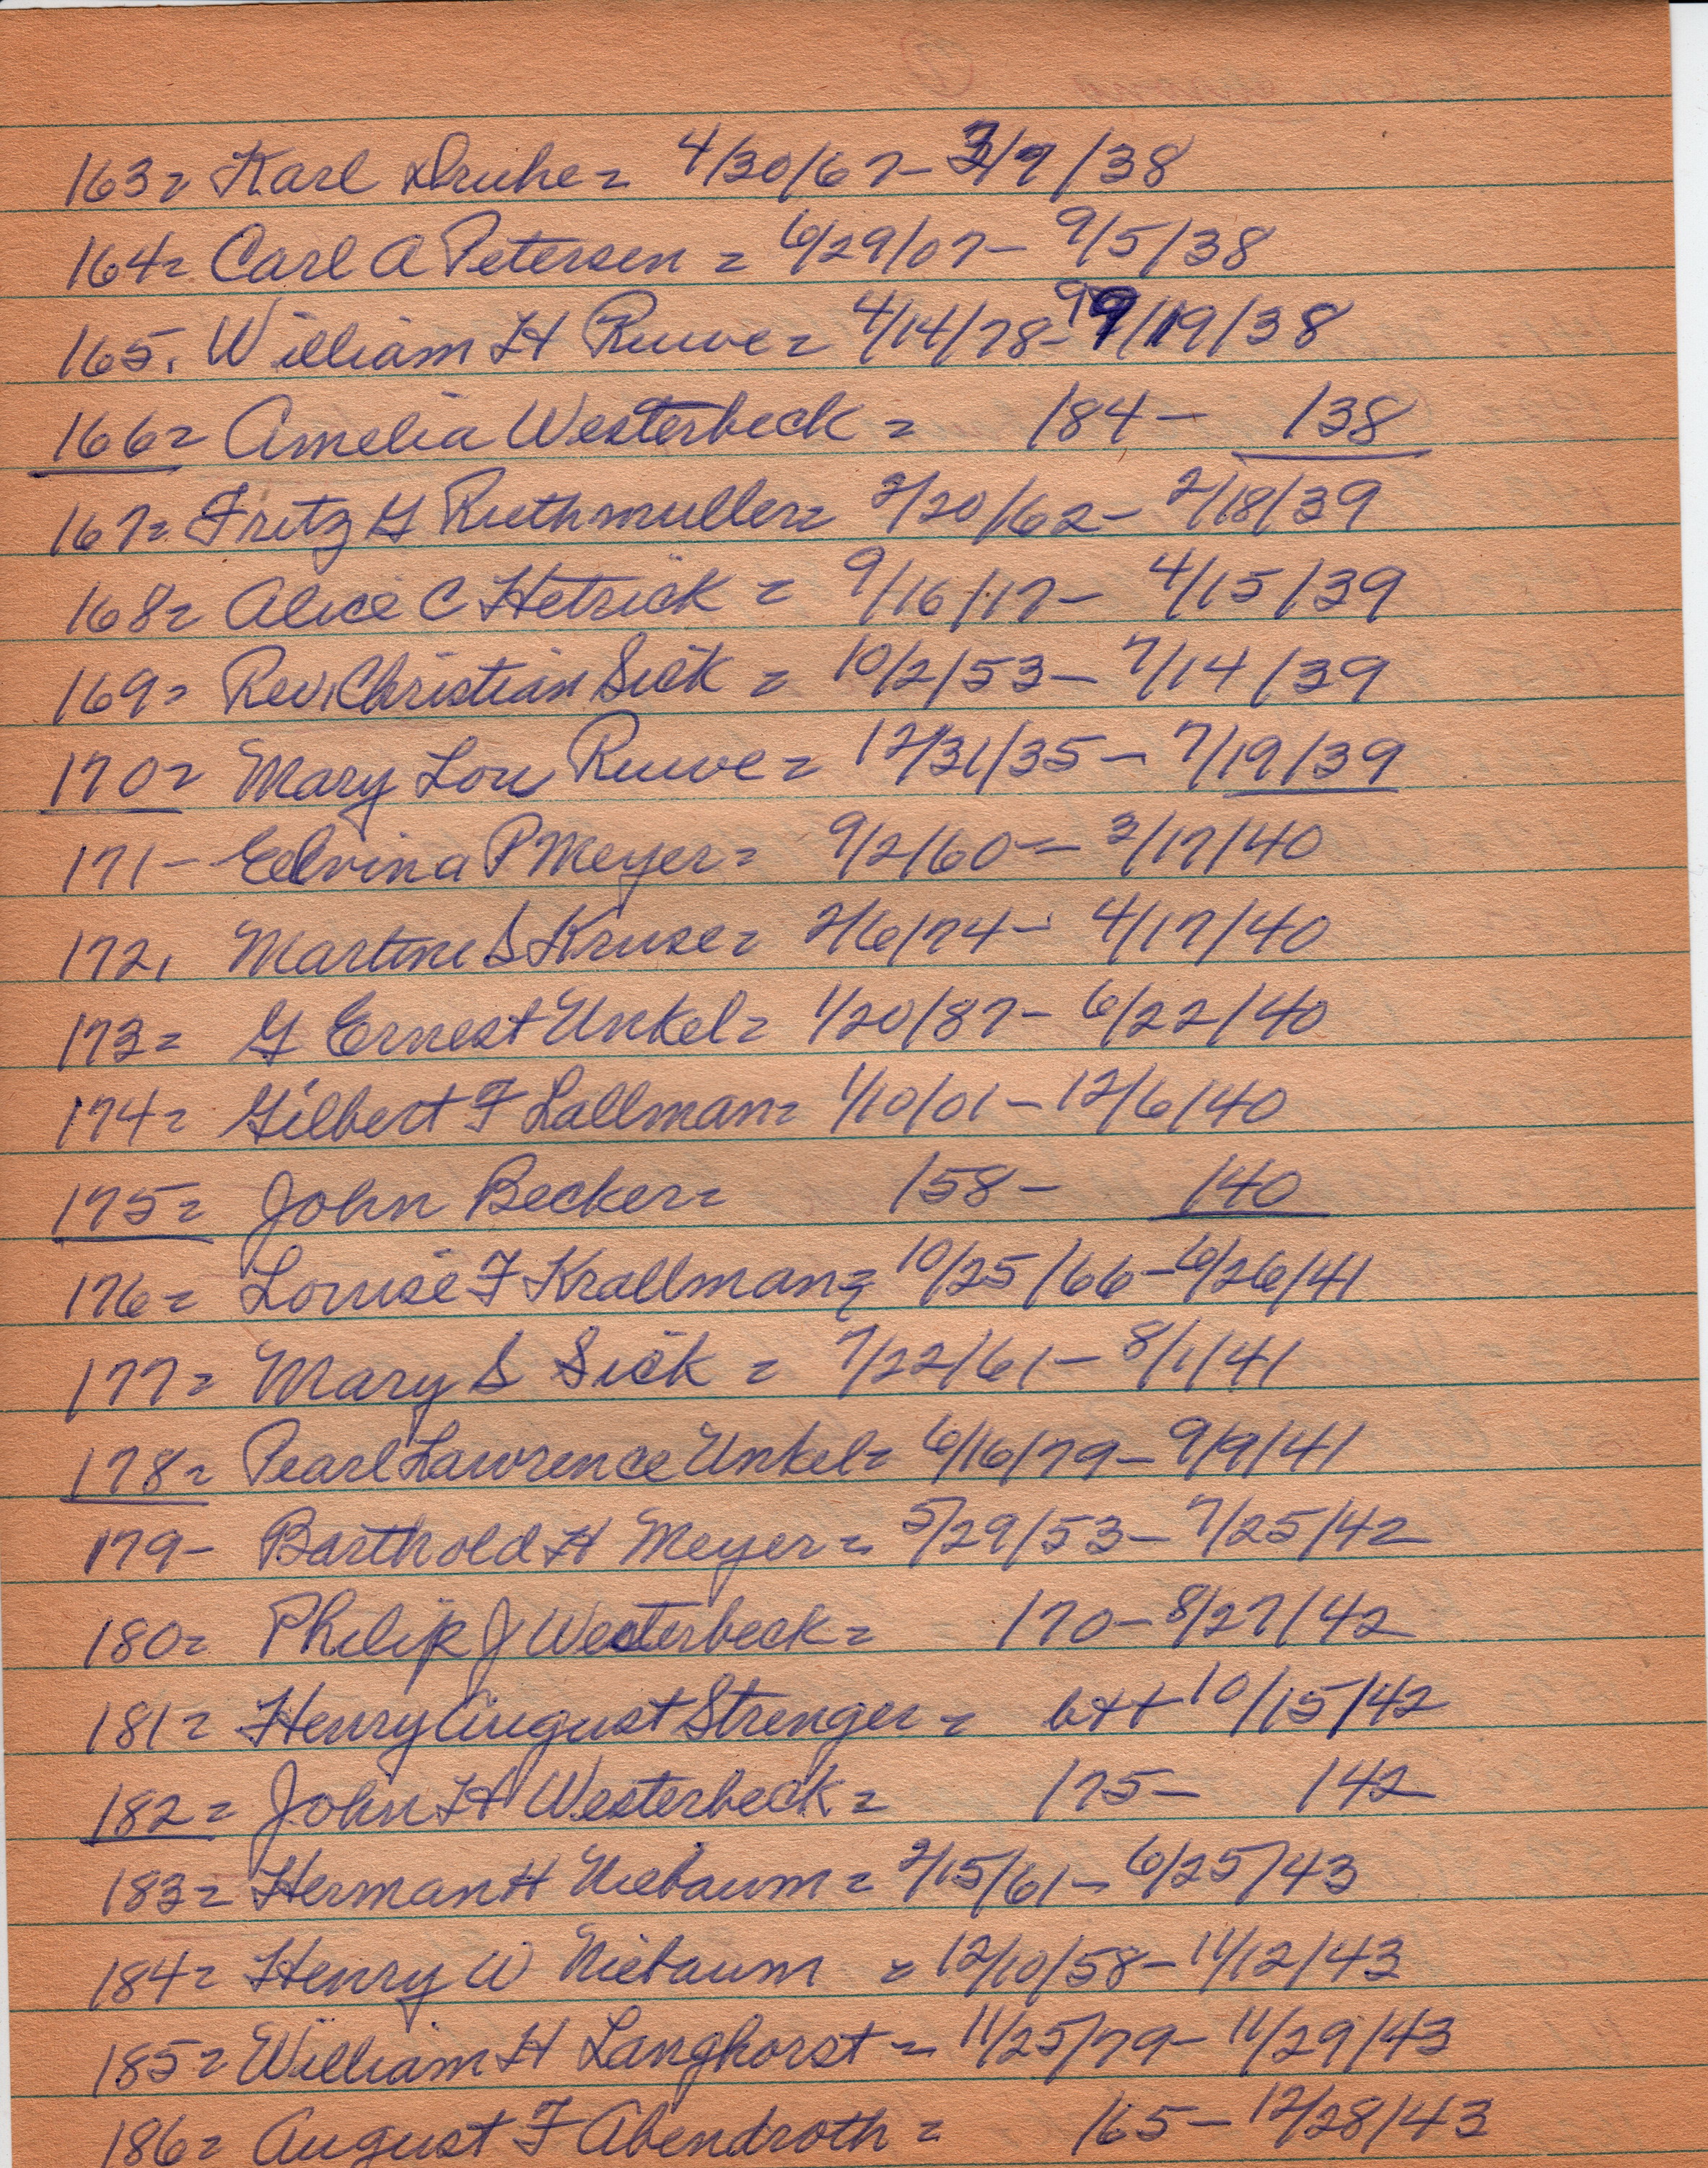 163= Karl Druhe = 4/30/67- 3/7/38
164= Carl A Petersen = 6/29/07- 9/5/38
165. William H Ruwe = 4/14/78- 9/19/38
166= Amelia Westerbeck = /84- /38
167= Fritz G Ruthmuller= 2/20/62- 2/18/39
168= Alice C Hetrick = 9/16/17- 4/15/39
169= Rev. Christian Sick = 10/2/53- 7/14/39
170= Mary Lou Ruwe = 12/31/35- 7/19/39
171- Edvina P Meyer= 9/2/60- 2/17/40
172. Martine S Kruse= 2/6/74- 4/17/40
173= G Ernest Unkel= 1/20/87- 6/22/40
174= Gilbert F Lallman= 1/10/01- 12/6/40
175= John Becker= /58- /40
176= Louise F Krallman= 10/25/66- 6/26/41
177= Mary S Sick = 7/22/61- 8/1/41
178= Pearl Lawrence Unkel= 6/16/79- 9/9/41
179- Barthold H Meyer= 5/29/53- 7/25/42
180= Philip J Westerbeck= /70- 8/27/42
181= Henry August Strenger = 10/15/42
182= John H Westerbeck= /75- /42
183= Herman H Niebaum = 2/15/61- 6/25/43
184= Henry W Niebaum = 12/10/58- 11/12/43
185= William H Langhorst = 11/25/79- 11/29/43
186= August F Abendroth = /65- 12/28/43